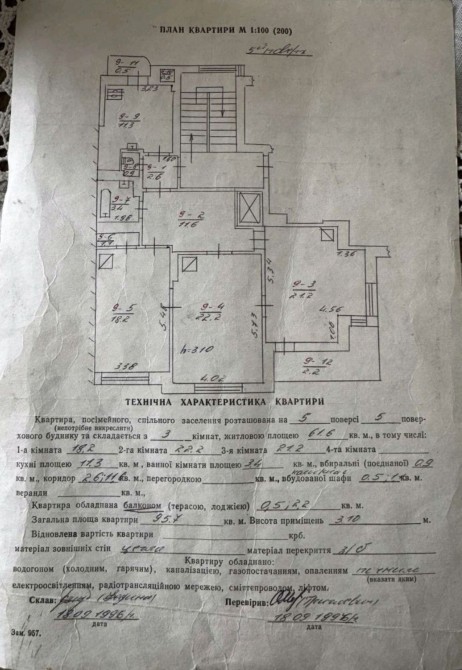 ПЛАН КВАРТИРИ М 1:100 (200)
5ий поверх
9-11
0.5
9-9
11.3
9-1
2.6
9-7
3.4
9-2
11.6
9-5
18.2
3.58
5.48
9-4
22.2
h=3.10
4.02
5.73
9-3
21.2
1.36
5.34
4.56
9-12
2.2
ТЕХНІЧНА ХАРАКТЕРИСТИКА КВАРТИРИ
Квартира, посімейного, спільного заселення розташована на 5 поверсі 5 повер-
(непотрібне викреслити)
хового будинку та складається з 3 кімнат, житловою площею 61.6 кв. м., в тому числі:
1-а кімната 18,2 2-га кімната 22.2 3-я кімната 21.2 4-та кімната
кухні площею 11,3 кв. м., ванної кімнати площею 3.4 кв. м., вбиральні (поєднаної) 0,9
кв. м., коридор 2.6; 11.6 кв. м., перегородкою кв. м., вбудованої шафи 0.5; кв. м.
веранди кв. м.,
Квартира обладнана балконом (терасою, лоджією) 0,5; 2,2 кв. м.
Загальна площа квартири 95,7 кв. м. Висота приміщень 3.10 м.
Відновлена вартість квартири крб.
матеріал зовнішніх стін цегла матеріал перекриття з/б
Квартиру обладнано:
водогоном (холодним, гарячим), каналізацією, газопостачанням, опаленням
(вказати яким)
електроосвітленням, радіотрансляційною мережею, сміттєпроводом, ліфтом.
Склав: Перевірив:
18.09.1996р. 18.09.1996р.
дата дата
Зам. 957.